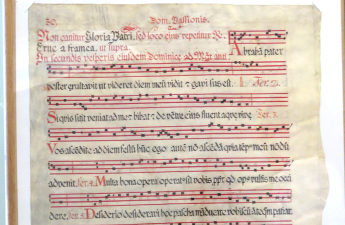 30. Dom. Passionis.
Non canitur Gloria Patri, sed loco eius repetitur
Erue a framea, ut supra. Abrahā pater
In secundis vesperis eiusdem dominice ad ant.
vester exultavit ut videret diem meū vidit & gavisus est. Fer. 2.
Si quis sitit veniat ad me & bibat & de vētre eius fluent aque vive. Fer. 3.
Vos ascēdite ad diem festū hūc ego autē nō ascēdā quia tēp⁹ meū nōdū
advenit. Fer. 4. Multa bona opera operat⁹ sū vobis, ppť qd opus vultis me occi
dere, Fer. 5. Desiderio desideravi hoc pascha māducare vobiscū ātequā patiar.